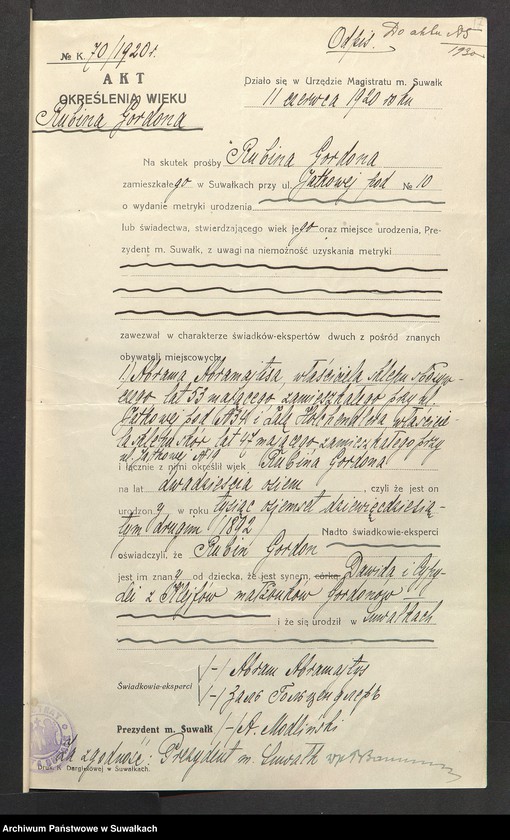 Odpis. Do aktu № 5
1920
№ K. 70/1920 r.
AKT
OKREŚLENIA WIEKU
Rubina Gordona
Działo się w Urzędzie Magistratu m. Suwałk
11 czerwca 1920 roku
Na skutek prośby Rubina Gordona
zamieszkałego w Suwałkach przy ul. Jatkowej pod № 10
o wydanie metryki urodzenia
lub świadectwa, stwierdzającego wiek jego oraz miejsce urodzenia, Pre-
zydent m. Suwałk, z uwagi na niemożność uzyskania metryki
zawezwał w charakterze świadków-ekspertów dwuch z pośród znanych
obywateli miejscowych:
1) Abrama Abramajtysa, właściciela sklepu
lat 53 mającego zamieszkałego przy ul.
Jatkowej pod № 34 i właścicie-
la sklepu skór lat 47 mającego zamieszkałego przy
ul. Jatkowej № 19
i łącznie z nimi określił wiek Rubina Gordona
na lat dwadzieścia osiem, czyli że jest on
urodzony w roku tysiąc osiemset dziewięćdziesią-
tym drugim /1892/ Nadto świadkowie-eksperci
oświadczyli, że Rubin Gordon
jest im znany od dziecka, że jest synem, córką Dawida i
z małżonków Gordonów
i że się urodził w Suwałkach
Świadkowie-eksperci
/-/ Abram Abramajtys
/-/ Залъ Гольцендлеръ
Prezydent m. Suwałk /-/ A. Modliński
Za zgodność: Prezydent m. Suwałk
Druk. R. Dargielowej w Suwałkach.
Archiwum Państwowe w Suwałkach